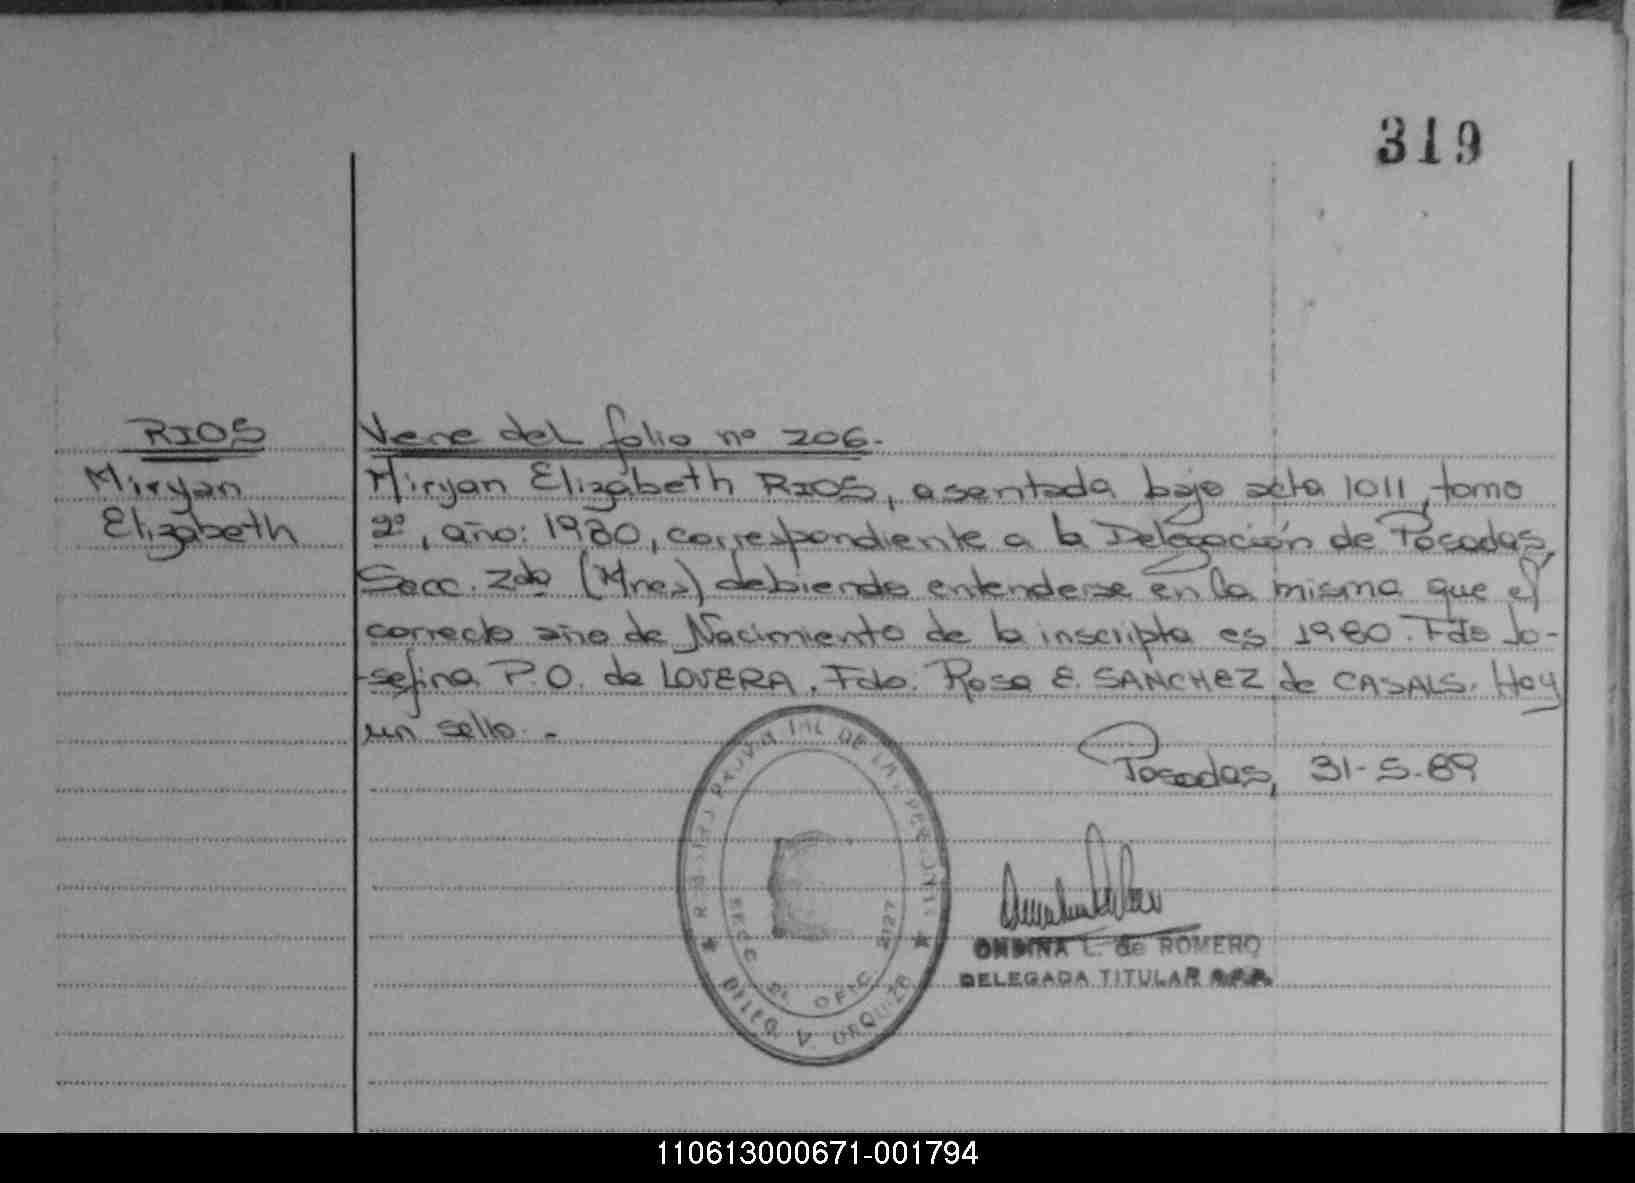 319
RIOS
Miryan
Elizabeth
Viene del folio nº 206.-
Miryan Elizabeth RIOS, asentada bajo acta 1011, tomo
2º, año: 1980, correspondiente a la Delegación de Posadas,
Secc. 2da (Mnes) debiendo entenderse en la misma que el
correcto año de Nacimiento de la inscripta es 1980. Fdo Jo-
sefina P.O. de LOVERA. Fdo. Rosa E. SANCHEZ de CASALS. Hay
un sello.-
Posadas, 31-5-89
DE LAS PERSONAS
SECC. OFIC. 2127
DELEG. V. URQUIZA
ONDINA L. de ROMERO
DELEGADA TITULAR
110613000671-001794